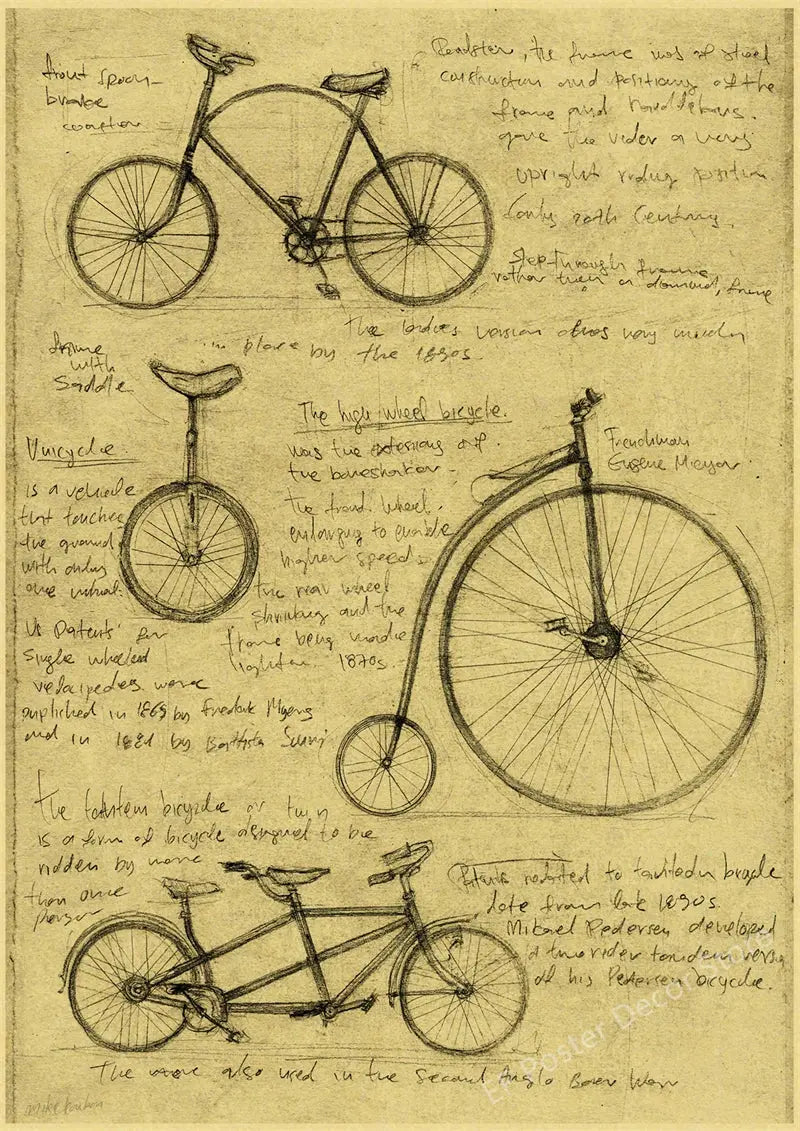 front spoon-
brake
Roadster, the frame was of steel
construction and positiong of the
frame and handlebars.
gave the rider a very
upright riding position.
Early 20th Century.
Step-through frame
rather than a diamond, frame
The ladies version was very much
in place by the 1890s.
frame
with
Saddle
Unicycle
is a vehicle
that touches
the ground
with only
one wheel.
US Patents for
single wheeled
velocipedes were
published in 1869 by Fredrik Myers
and in 1881 by Battista Scuri
The high wheel bicycle.
was the extension of
the boneshaker -
the front wheel.
enlarging to enable
higher speeds.
the rear wheel
shrinking and the
frame being made
lighter. 1870s.
Frenchman
Eugene Meyer
The tandem bicycle or twin
is a form of bicycle designed to be
ridden by more
than one
person
Patents related to tandem bicycle
date from late 1890s.
Mikael Pedersen developed
a two rider tandem version
of his Pedersen bicycle.
The were also used in the Second Anglo Boer War